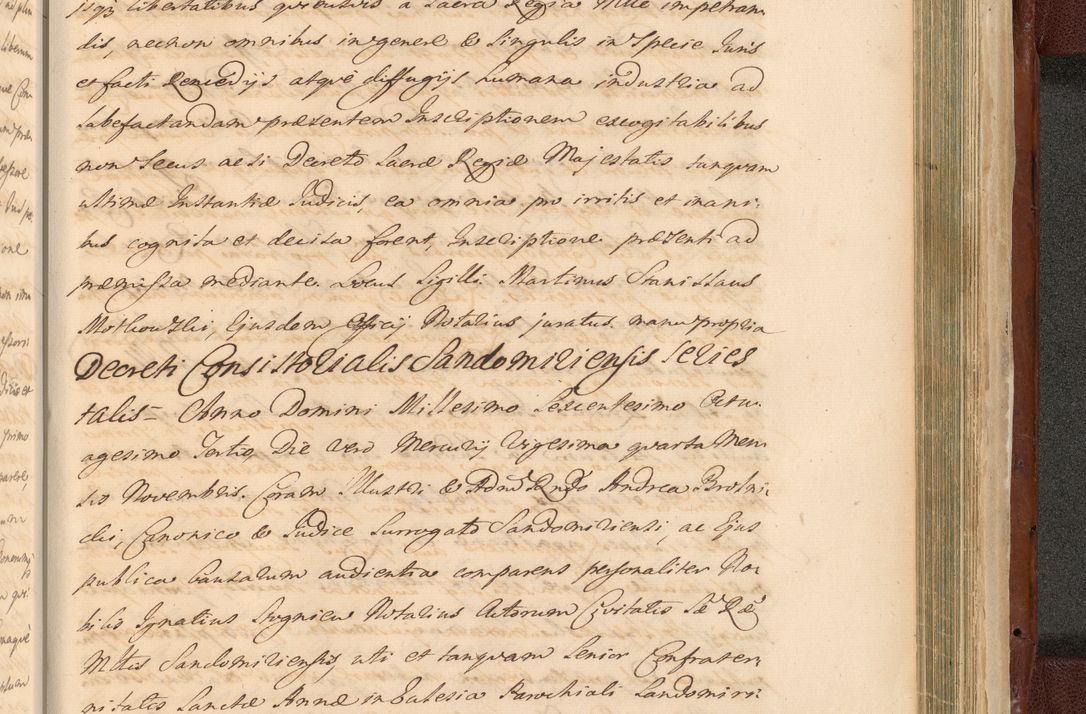 isq3 libertatibus quibusvis a Sacra Regia Mtte impetran
dis, necnon omnibus in genere & Singulis in Specie Juris
et facti Remedijs atqve diffugijs humana industria ad
labefactandam praesentem Inscriptionem excogitabilibus
non Secus ac si Decreto Sacrae Regiae Majestatis tanquam
ultimae Instantiae Judicis, ea omnia pro irritis et inani:
bus cognita et decisa forent, Inscriptione praesenti ad
praemissa mediante. Locus Sigilli. Martinus Stanislaus
Ejusdem Officij Notarius juratus manu propria
Decreti Consistorialis Sandomiriensis Series
talis = Anno Domini Millesimo Sexcentesimo Octu
agesimo Tertio, Die vero Mercurij Vigesima quarta Men
sis Novembris. Coram Illustri & Admd Rndo Andrea Brosni
cki, Canonico & Judice Surrogato Sandomiriensi, ac Ejus
publica Causarum audientia comparens personaliter No:
bilis Ignatius Notarius Actorum Civitatis Sae Rae
Mttis Sandomiriensis uti et tanquam Senior Confrater:
nitatis Sanctae Annae in Eclesia Parochiali Sandomiri: